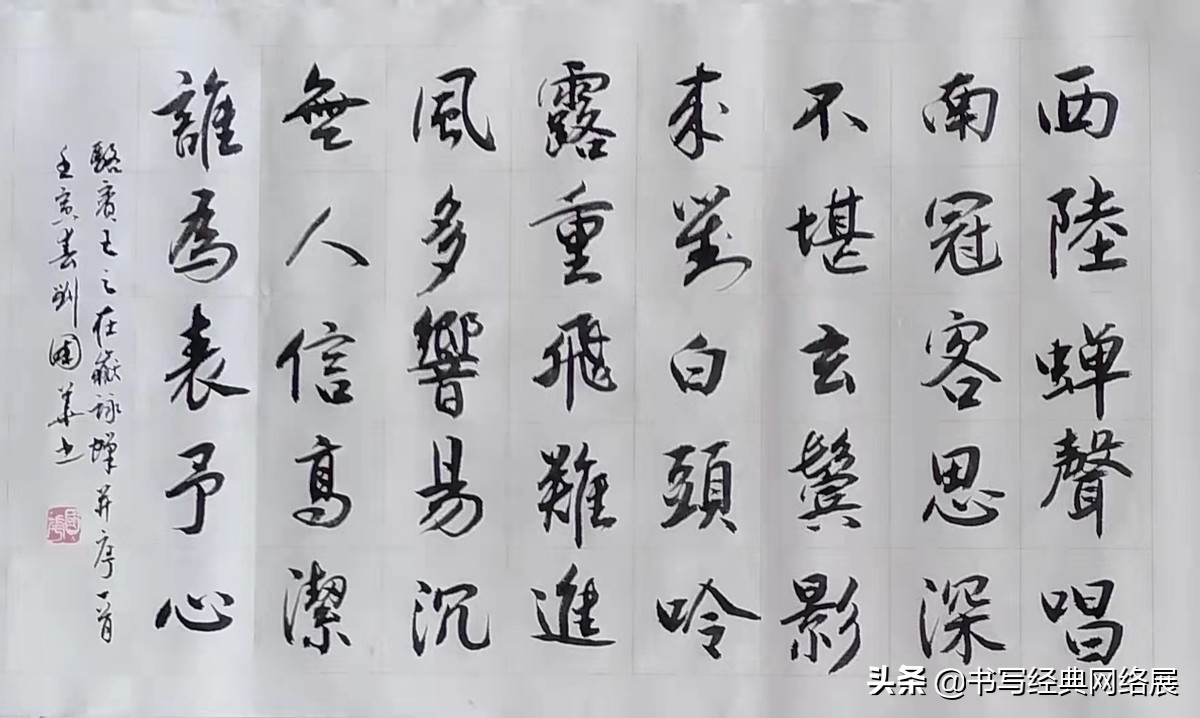 西陸蝉聲唱
南冠客思深
不堪玄鬓影
来對白頭吟
露重飛難進
風多響易沉
無人信高潔
誰為表予心
駱賓王之在嶽詠蟬并序一首
壬寅春刘國華书
头条 @书写经典网络展